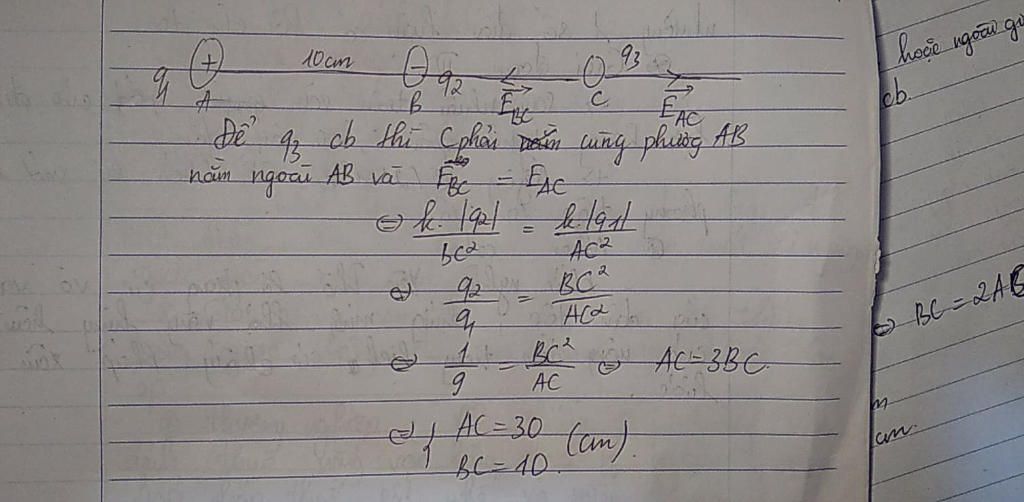 q1 + 10cm − q2 q3
A B E⃗BC C E⃗AC
Để q3 cb thì C phải cùng phương AB
nằm ngoài AB và EBC = EAC
⇔ k.|q2| / BC² = k.|q1| / AC²
⇔ q2 / q1 = BC² / AC²
⇔ 1 / 9 = BC² / AC ⇔ AC = 3BC.
⇔ { AC = 30
BC = 10. (cm).
hoặc ngoài
cb.
⇔ BC = 2AB
m
cm.